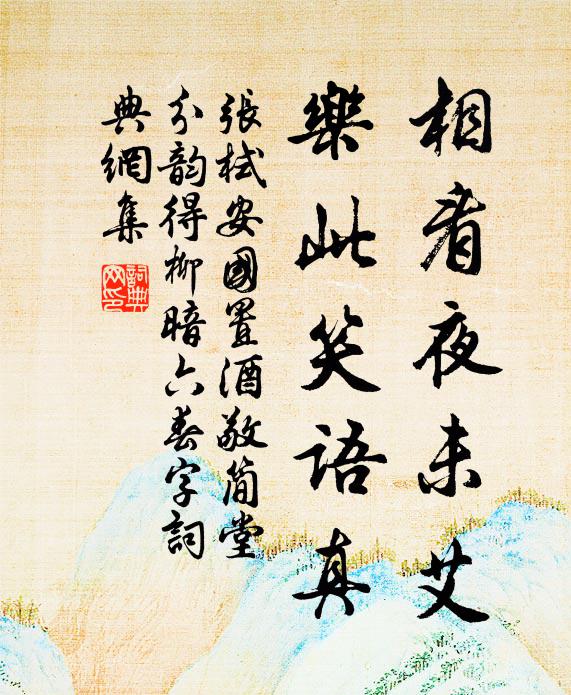 相看夜未艾
樂此笑語真
張栻安國置酒敬簡堂
分韵得柳暗六春字詞
典網集
詞典网印